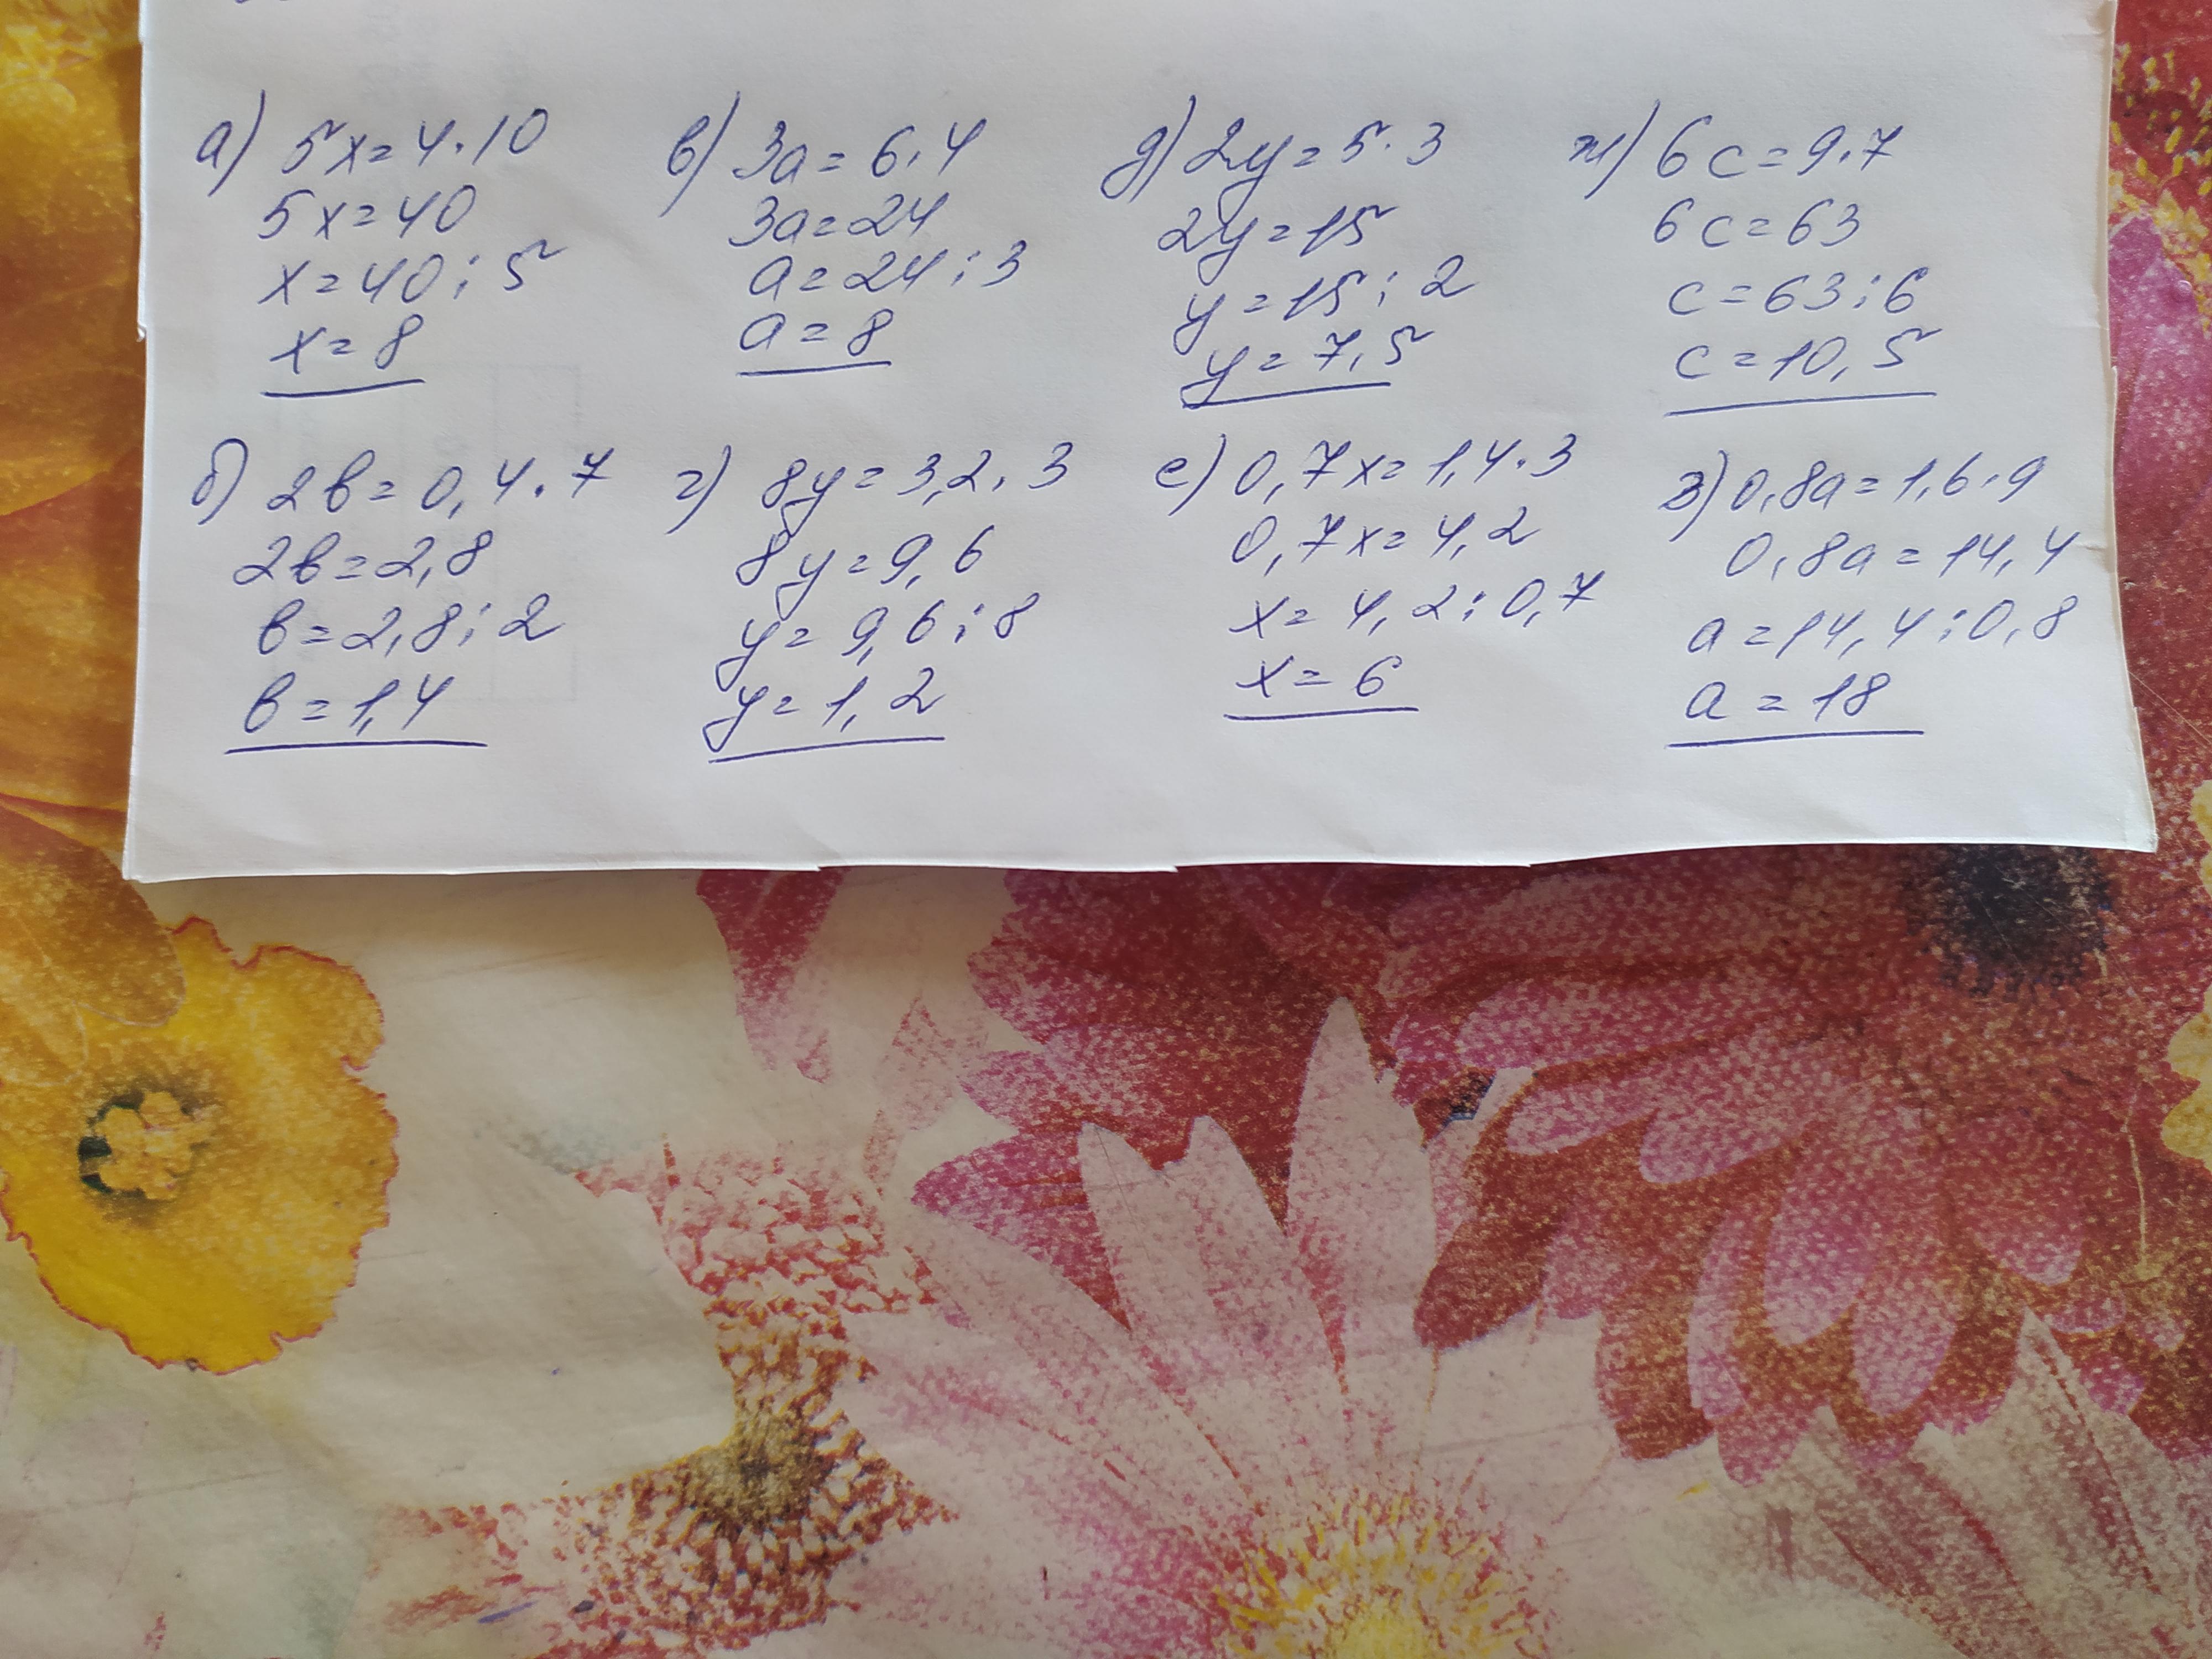 а) 5x=4·10
5x=40
x=40:5
x=8
б) 2b=0,4·7
2b=2,8
b=2,8:2
b=1,4
в) 3a=6·4
3a=24
a=24:3
a=8
г) 8y=3,2·3
8y=9,6
y=9,6:8
y=1,2
д) 2y=5·3
2y=15
y=15:2
y=7,5
е) 0,7x=1,4·3
0,7x=4,2
x=4,2:0,7
x=6
ж) 6c=9·7
6c=63
c=63:6
c=10,5
з) 0,8a=1,6·9
0,8a=14,4
a=14,4:0,8
a=18